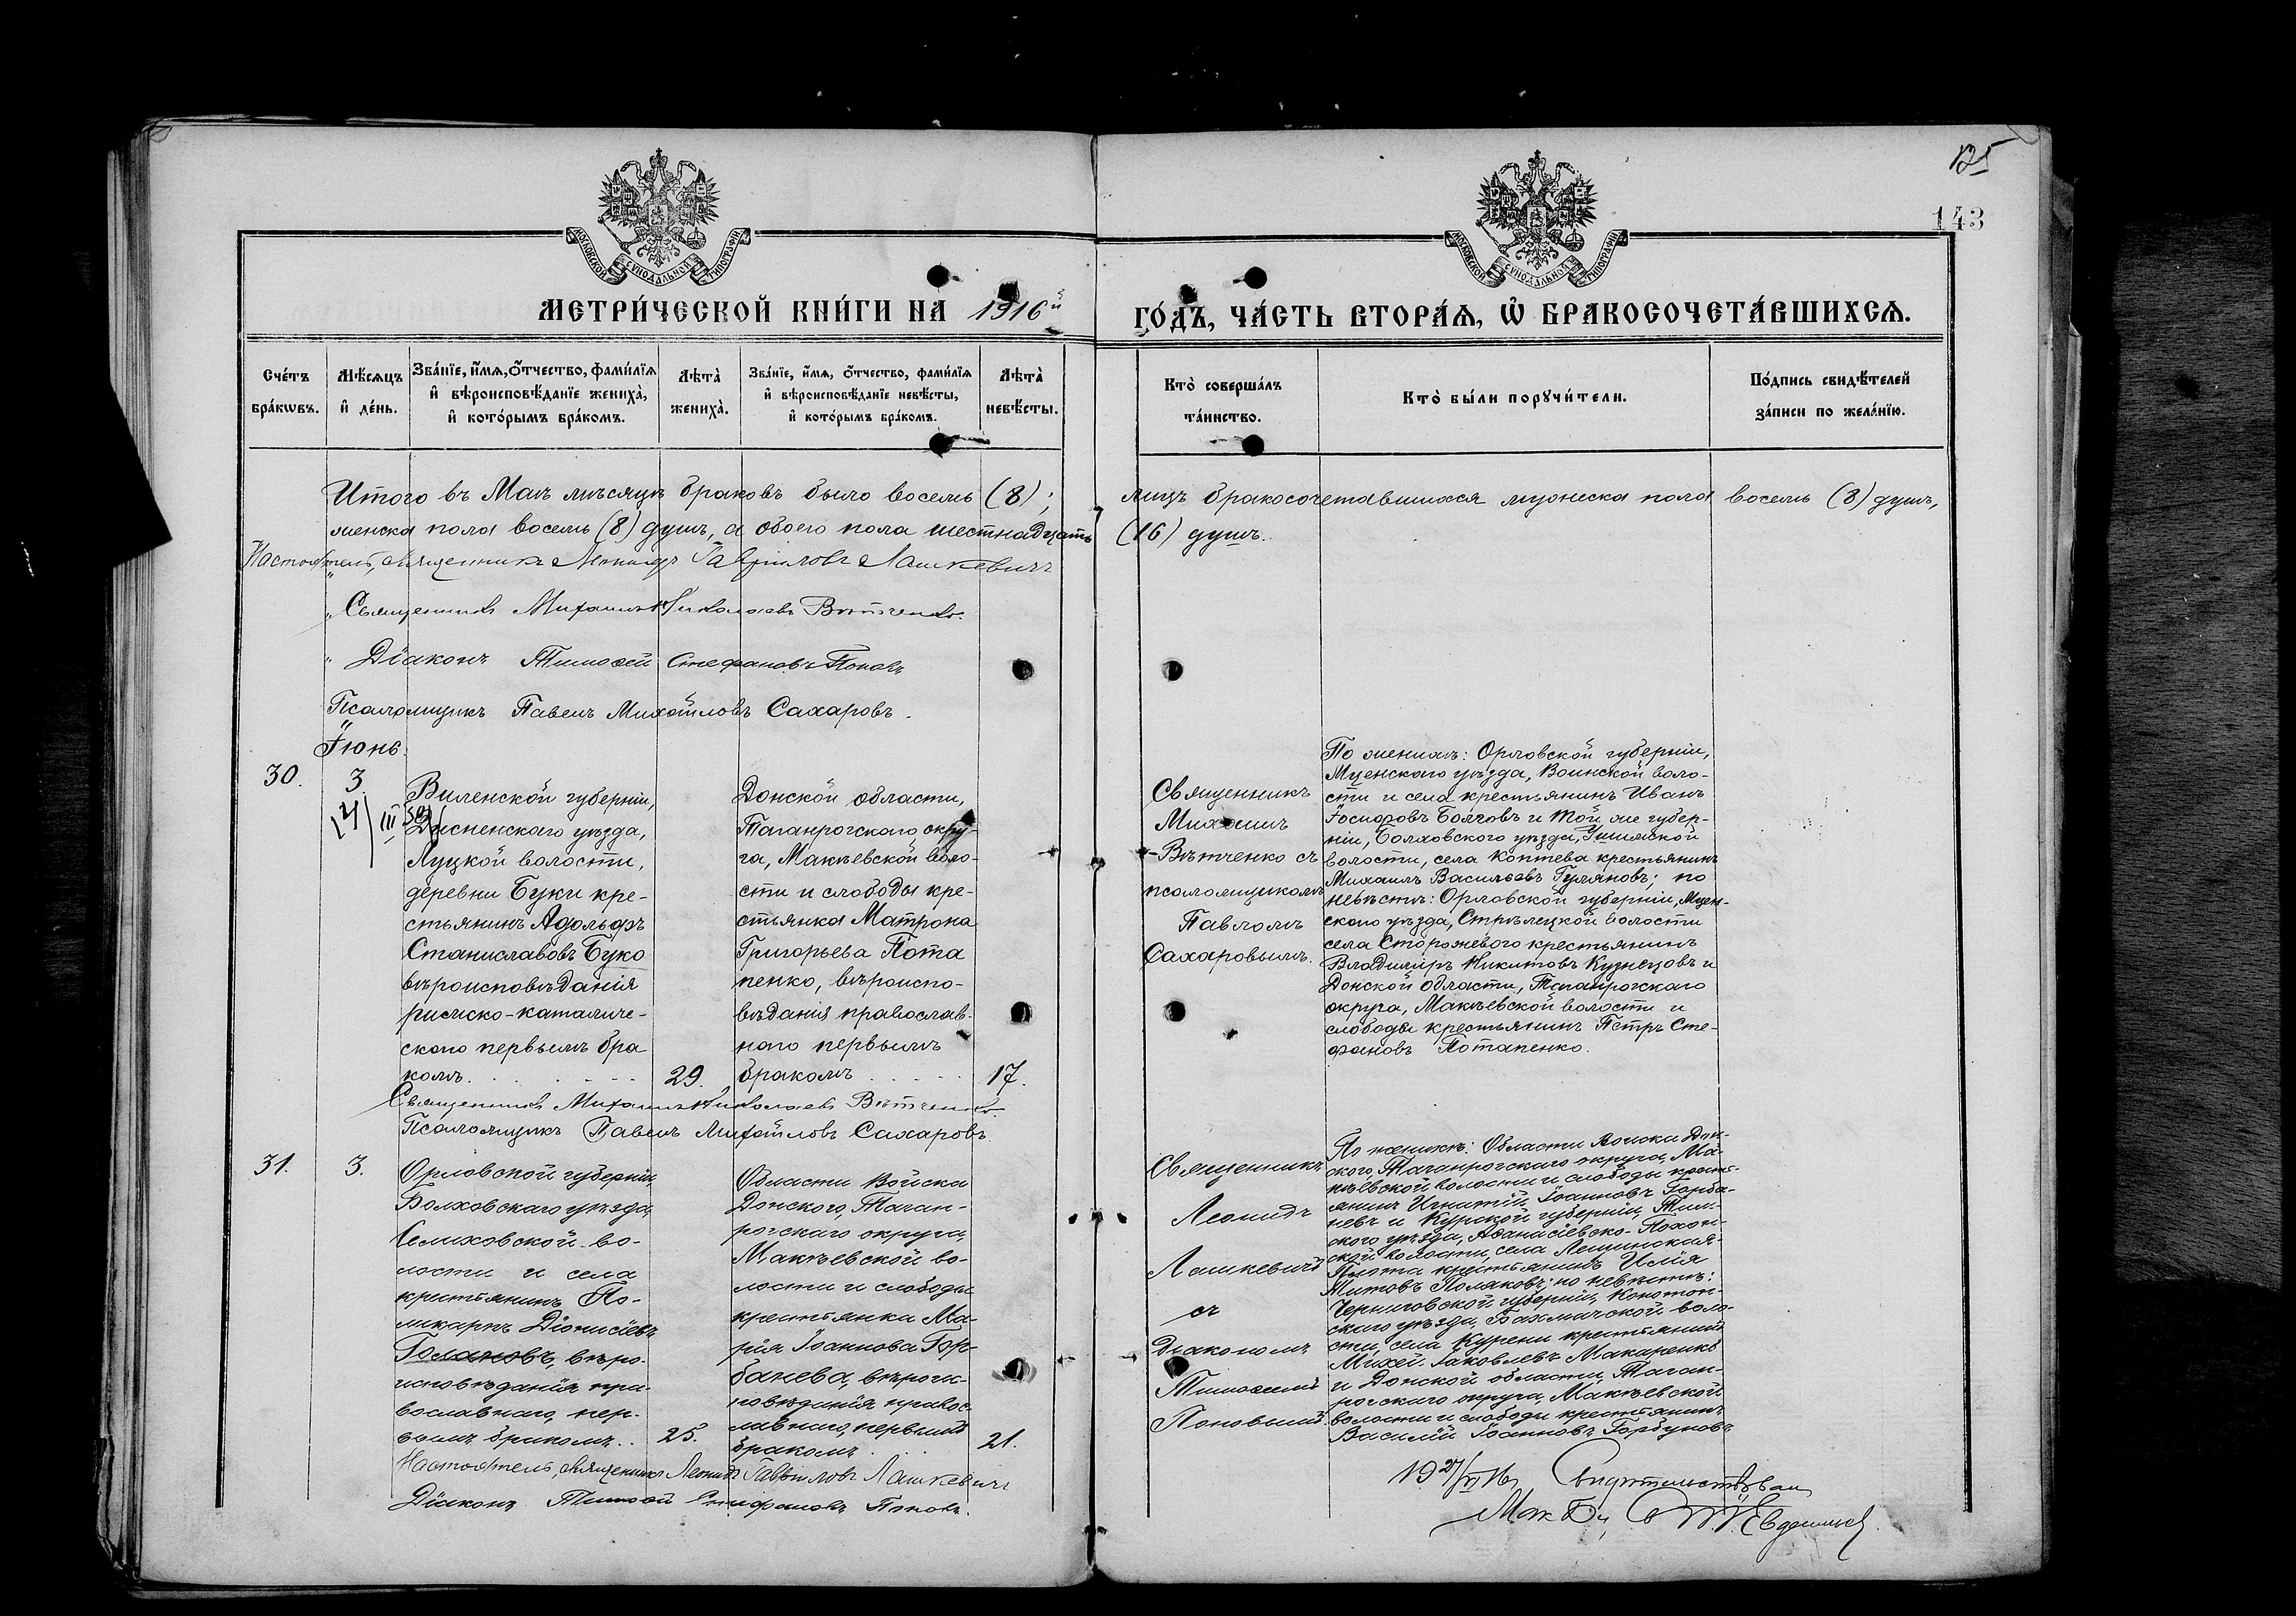 125
143
МОСКОВСКОЙ СѴНОДАЛЬНОЙ ТИПОГРАФІИ
МОСКОВСКОЙ СѴНОДАЛЬНОЙ ТИПОГРАФІИ
МЕТРИ́ЧЕСКОЙ КНИ́ГИ НА 1916й
ГО́ДЪ, ЧА́СТЬ ВТОРА́Ѧ, Ѡ҆ БРАКОСОЧЕТА́ВШИХСѦ.
Сче́тъ бра́кѡвъ.
Мѣ́сѧцъ и҆ де́нь.
Зва́нїе, и҆́мѧ, ѻ҆́тчество, фами́лїѧ и҆ вѣроисповѣ́данїе жениха̀, и҆ кото́рымъ бра́комъ.
Лѣта̀ жениха̀.
Зва́нїе, и҆́мѧ, ѻ҆́тчество, фами́лїѧ и҆ вѣроисповѣ́данїе невѣ́сты, и҆ кото́рымъ бра́комъ.
Лѣта̀ невѣ́сты.
Кто̀ соверша́лъ та́инство.
Кто̀ бы́ли порꙋчи́тели.
По́дпись свидѣ́телей за́писи по жела́нїю.
Итого въ Маѣ мѣсяцѣ браковъ было восемь (8); лицъ бракосочетавшихся мужеска пола восемь (8) душъ,
женска пола восемь (8) душъ, а обоего пола шестнадцать (16) душъ.
Настоятель, священникъ Леонидъ Гавриловъ Лашкевичъ
Священникъ Михаилъ Николаевъ Вѣтченко.
Діаконъ Тимоѳей Стефановъ Поповъ
Псаломщикъ Павелъ Михайловъ Сахаровъ.
Іюнь.
30.
3.
Виленской губерніи,
Дисненскаго уѣзда,
Луцкой волости,
деревни Буки кре-
стьянинъ Адольфъ
Станиславовъ Буко
вѣроисповѣданія
римско-католиче-
скаго первымъ бра
комъ.
29.
Донской области,
Таганрогскаго окру-
га, Макѣевской воло-
сти и слободы кре-
стьянка Матрона
Григорьева Пота
пенко, вѣроиспо-
вѣданія православ-
наго первымъ
бракомъ
17.
Священникъ
Михаилъ
Вѣтченко съ
псаломщикомъ
Павломъ
Сахаровымъ.
По женихѣ: Орловской губерніи,
Мценскаго уѣзда, Воинской воло-
сти и села крестьянинъ Иванъ
и той же губер-
ніи, Болховскаго уѣзда,
волости, села Коптева крестьянинъ
Михаилъ Васильевъ Гуляновъ; по
невѣстѣ: Орловской губерніи, Мцен-
скаго уѣзда, Стрѣлецкой волости
села Сторожевого крестьянинъ
Владиміръ Никитовъ Кузнецовъ и
Донской области, Таганрогскаго
округа, Макѣевской волости и
слободы крестьянинъ Петръ Сте-
фановъ Потапенко.
Священникъ Михаилъ Николаевъ Вѣтченко.
Псаломщикъ Павелъ Михайловъ Сахаровъ.
31.
3.
Орловской губерніи,
Болховскаго уѣзда,
Селиховской во-
лости и села
крестьянинъ По-
ликарпъ Діонисіевъ
Голановъ, вѣро-
исповѣданія пра-
вославнаго, пер-
вымъ бракомъ..
25.
Области Войска
Донского, Таган-
рогскаго округа,
Макѣевской во-
лости и слободы
крестьянка Ма-
рія Іоаннова Гор-
банева, вѣроис-
повѣданія правос-
лавнаго, первымъ
бракомъ
21.
Священникъ
Леонидъ
Лашкевичъ
съ
Діакономъ
Тимоѳеемъ
Поповымъ.
По женихѣ: Области Войска Дон-
ского, Таганрогскаго округа, Ма-
кѣевской волости и слободы кресть-
янинъ Игнатій Іоанновъ Горба-
невъ и Курской губерніи, Тим-
скаго уѣзда, Аѳанасіевско-Похон-
ской волости, села Лещинская-
Плота крестьянинъ Илія
Титовъ Поляковъ; по невѣстѣ:
Черниговской губерніи, Конотоп-
скаго уѣзда, Бахмачской воло-
сти, села Курени крестьянинъ
Михей Іаковлевъ Макаренко
и Донской области, Таган-
рогскаго округа, Макѣевской
волости и слободы крестьянинъ
Василій Іоанновъ Горбуновъ
Настоятель, священникъ Леонидъ Гавриловъ Лашкевичъ
Діаконъ Тимоѳей Стефановъ Поповъ.
Свидѣтельствовалъ